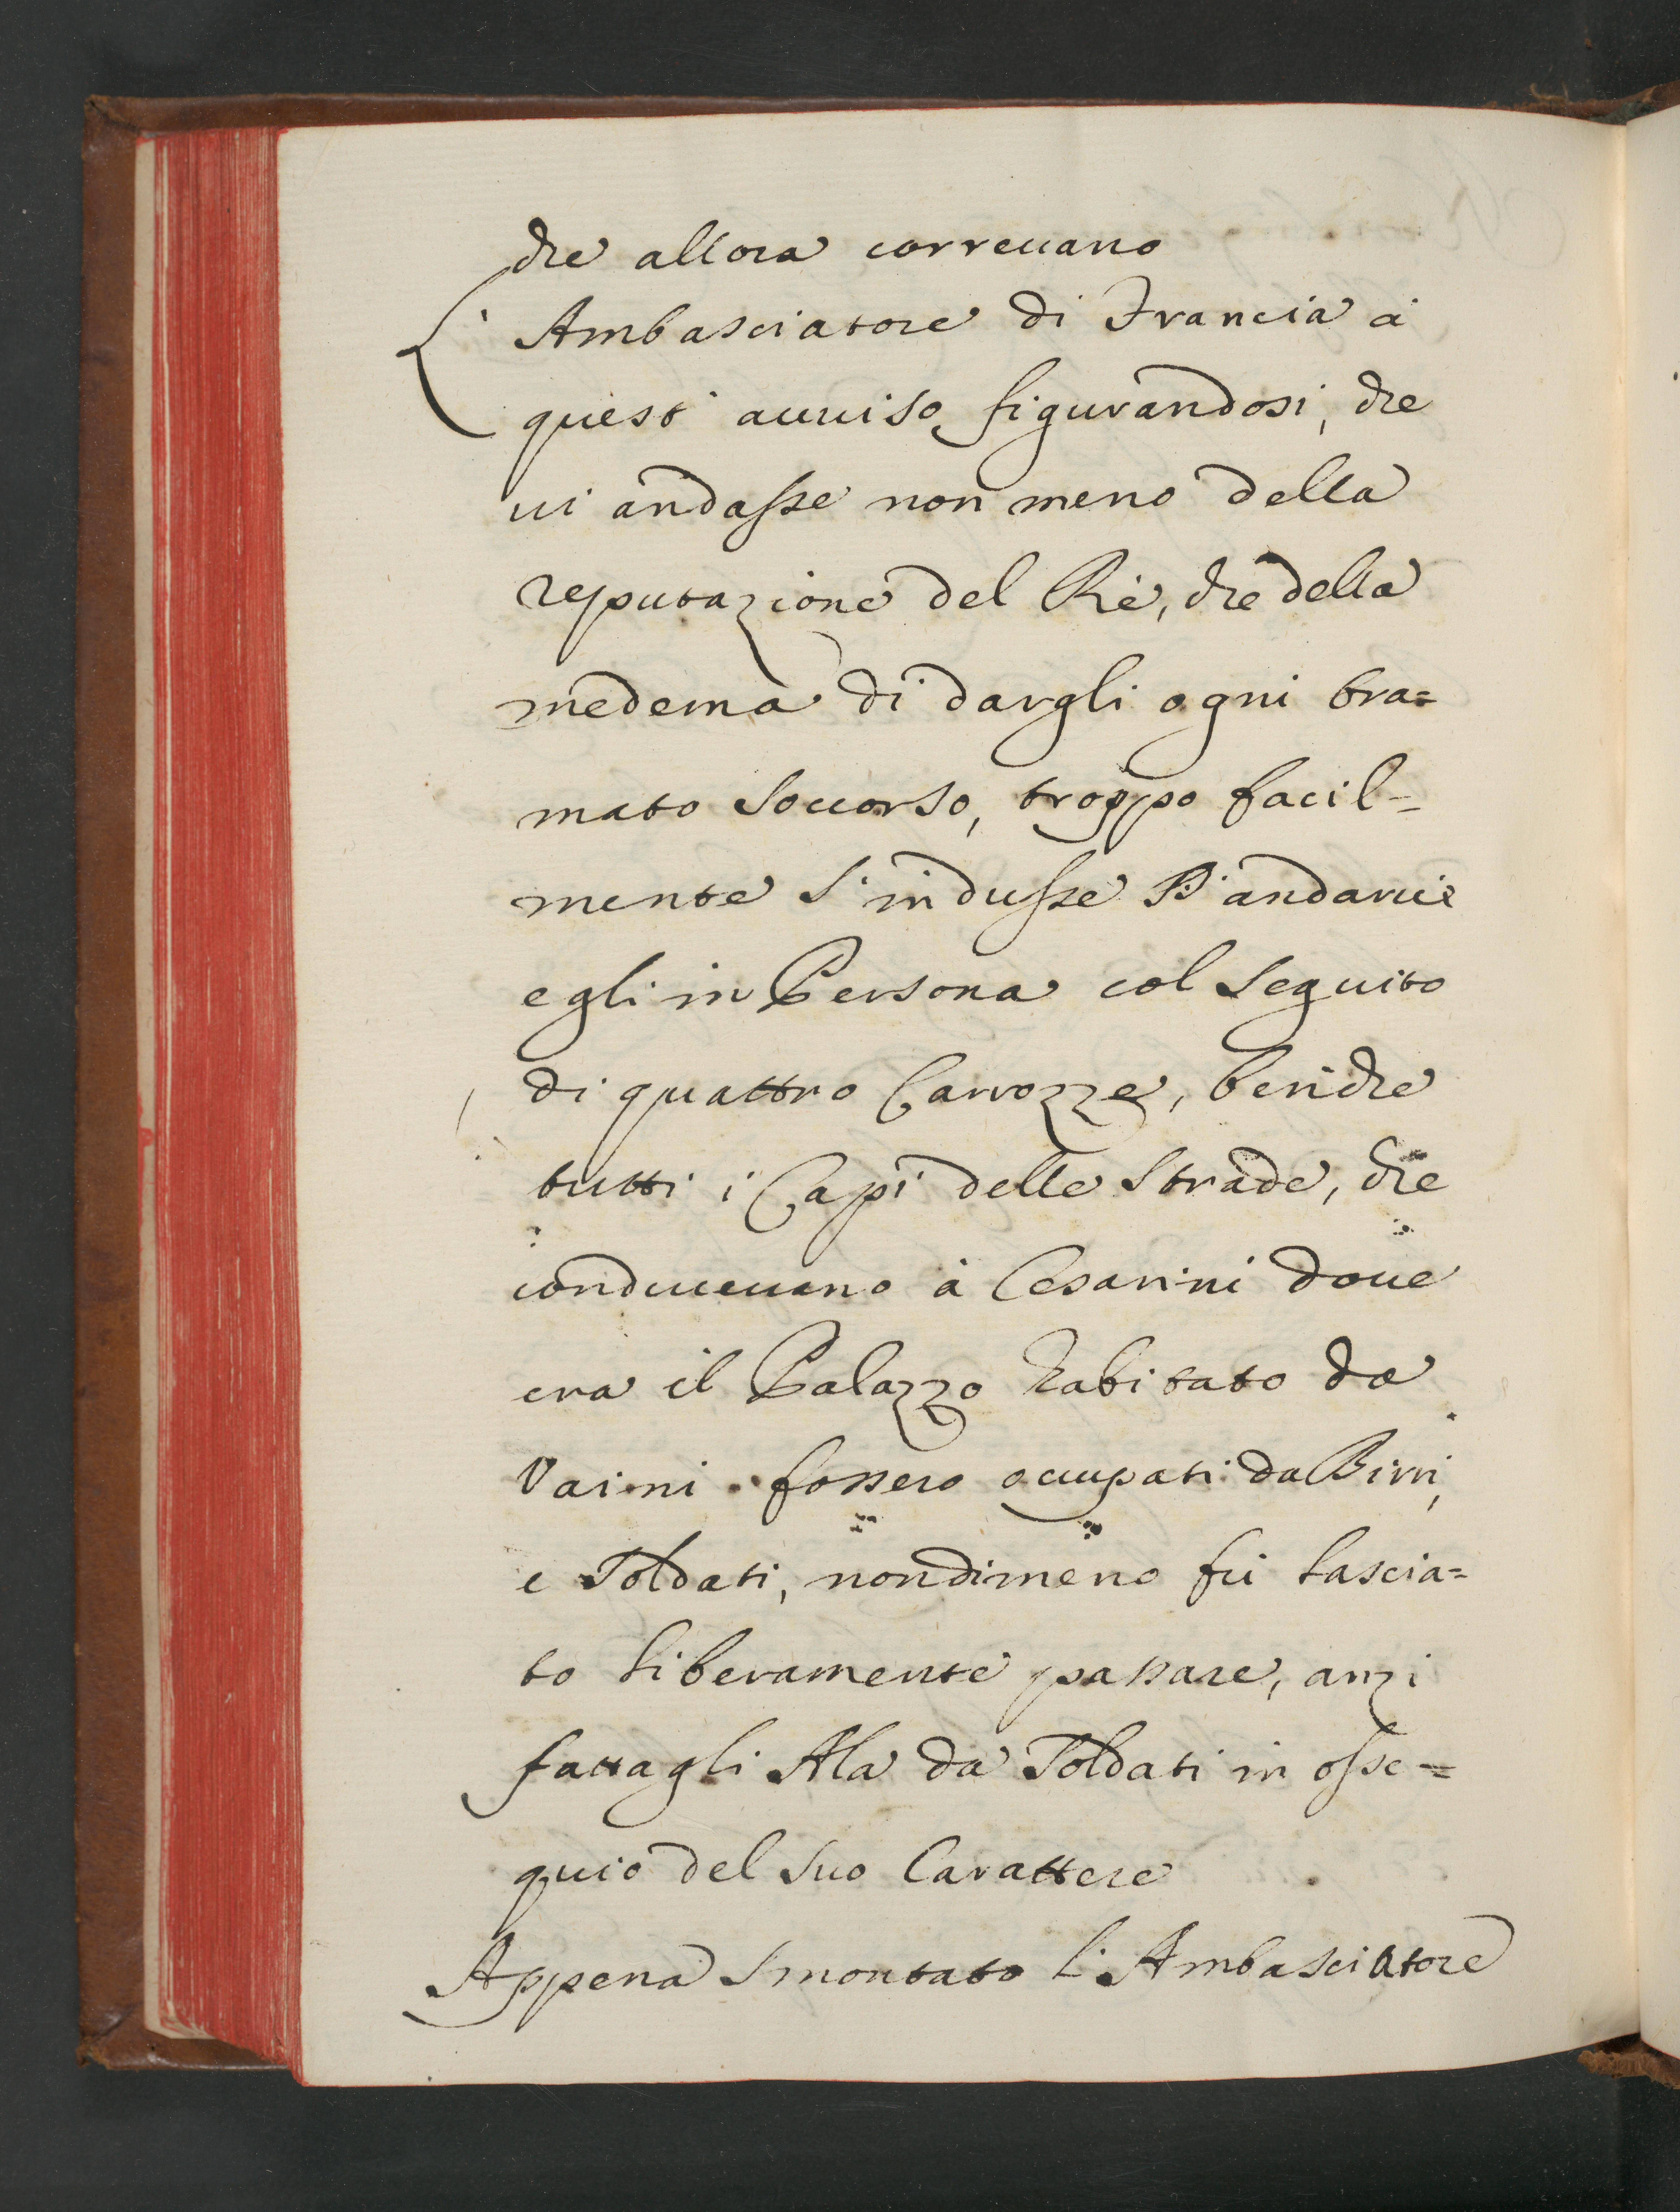 che allora correuano
L' Ambasciatore di Francia à
quest' auuiso figurandosi, che
ui andasse non meno della
reputazione del Rè, che della
medema di dargli ogni bra=
mato Soccorso, troppo facil=
mente S'indusse d'andarui
egli in Persona col Seguito
di quattro Carrozze, benche
tutti i Capi delle Strade, che
conduceuano à Cesarini doue
era il Palazzo habitato da
Vaini fossero occupati da Birri,
e Soldati, nondimeno fù lascia=
to liberamente passare, anzi
fattagli Ala da Soldati in osse=
quio del Suo Carattere
Appena Smontato L'Ambasciatore